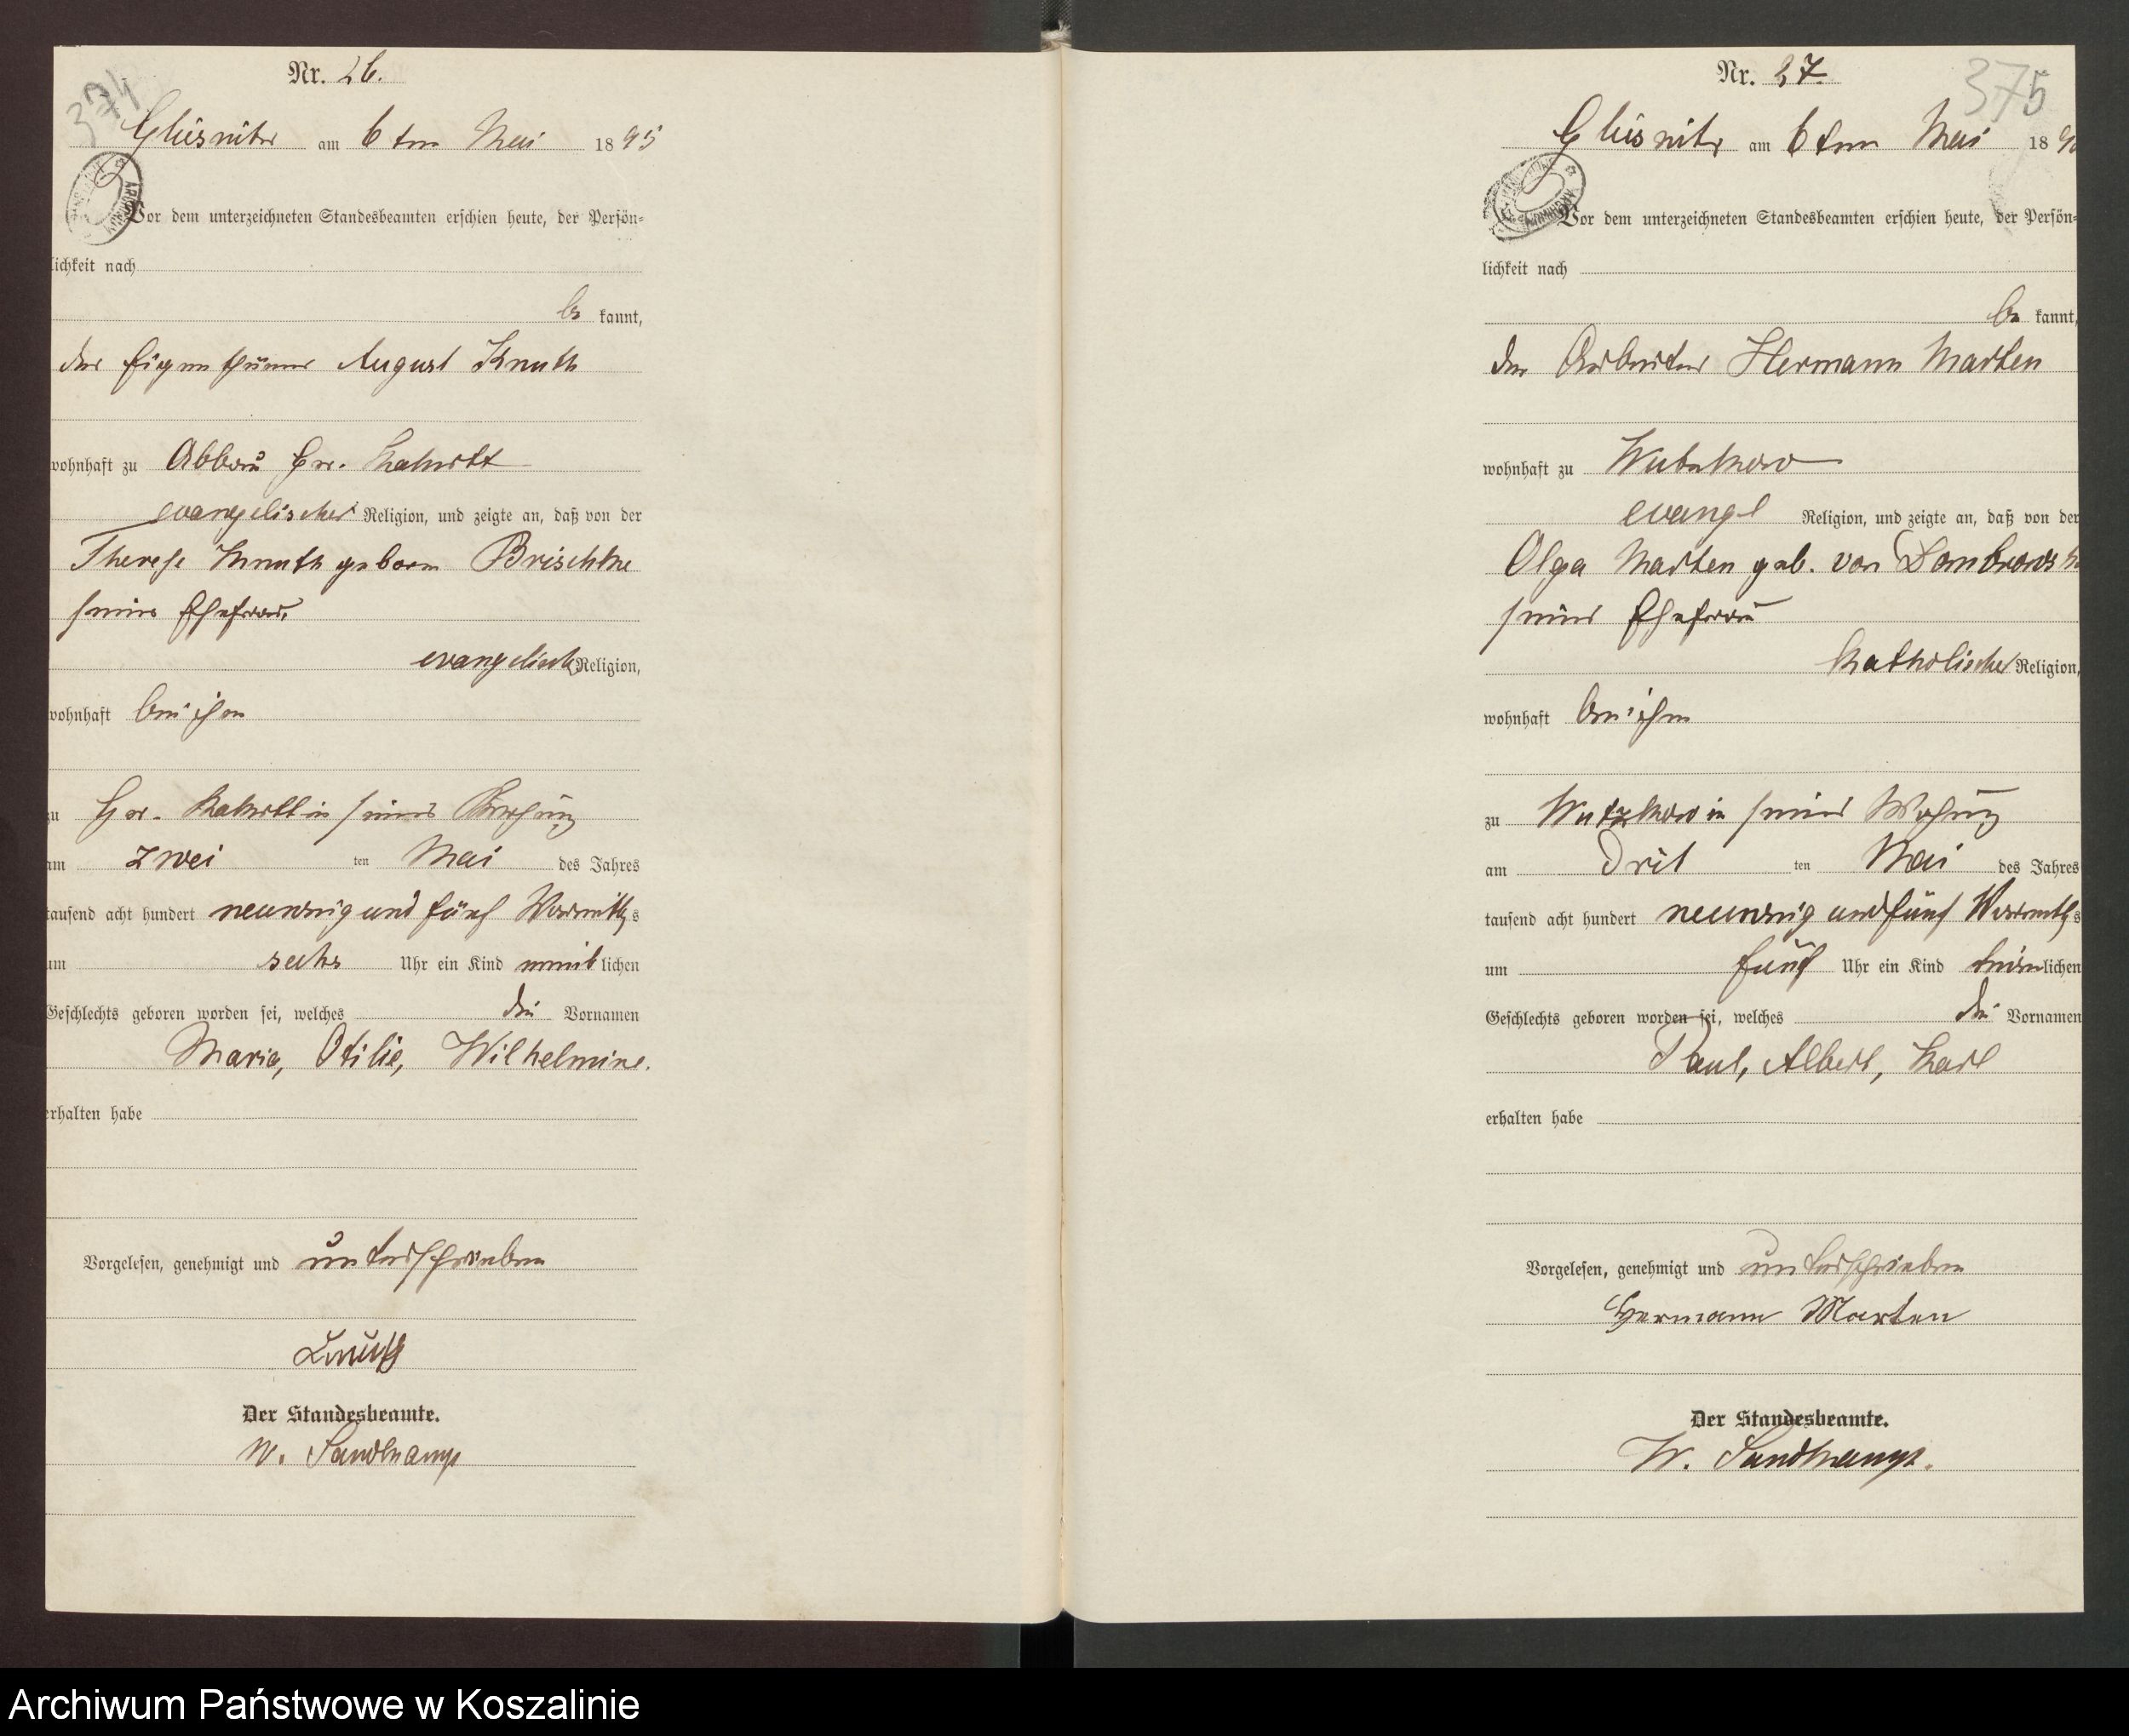 374
Nr. 26.
Glüsnitz am 6ten Mai 1895
Vor dem unterzeichneten Standesbeamten erschien heute, der Persön=
lichkeit nach
be kannt,
der Eigenthümer August Knuth
wohnhaft zu Abbau Gr. Rakitt
evangelischer Religion, und zeigte an, daß von der
Therese Knuth geboren Brischke
seiner Ehefrau,
evangelisch Religion,
wohnhaft bei ihm
zu Gr. Rakitt in seiner
am zwei ten Mai des Jahres
tausend acht hundert neunzig und fünf Vormittags
um sechs Uhr ein Kind weiblichen
Geschlechts geboren worden sei, welches die Vornamen
Maria, Otilie, Wilhelmine.
erhalten habe
Vorgelesen, genehmigt und unterschrieben
Knuth
Der Standesbeamte.
W. Sandkamp
375
Nr. 27.
Glüsnitz am 6ten Mai 189
Vor dem unterzeichneten Standesbeamten erschien heute, der Persön=
lichkeit nach
be kannt,
der Arbeiter Hermann Marten
wohnhaft zu Wutzkow
evangl Religion, und zeigte an, daß von der
Olga Marten geb. von Dombrowsk
seiner Ehefrau
katholischer Religion,
wohnhaft bei ihm
zu Wutzkow in seiner Wohung
am drit ten Mai des Jahres
tausend acht hundert neunzig und fünf Vormittags
um fünf Uhr ein Kind lichen
Geschlechts geboren worden sei, welches die Vornamen
Paul, Albert, Karl
erhalten habe
Vorgelesen, genehmigt und unterschrieben
Hermann Marten
Der Standesbeamte.
W. Sandkamp.
Archiwum Państwowe w Koszalinie